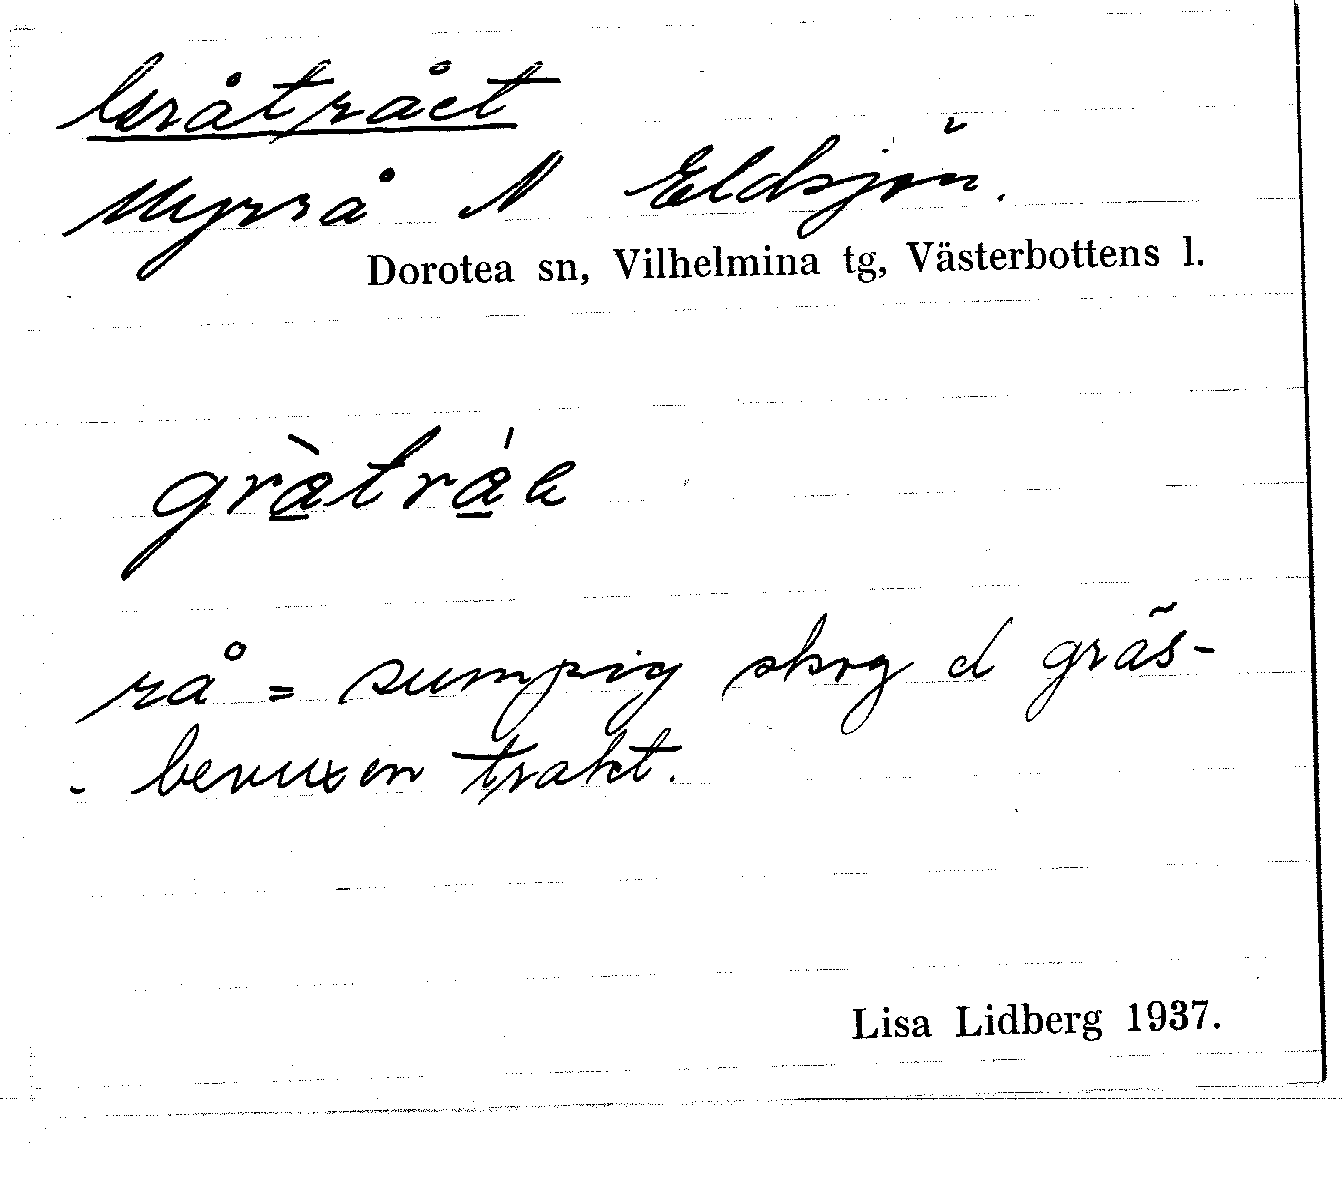 Gråtrået
Myrrå N Eldsjön.
Dorotea sn, Vilhelmina tg, Västerbottens l.
gràtráe
rå = sumpig skog d gräs-
bevuxen trakt.
Lisa Lidberg 1937.